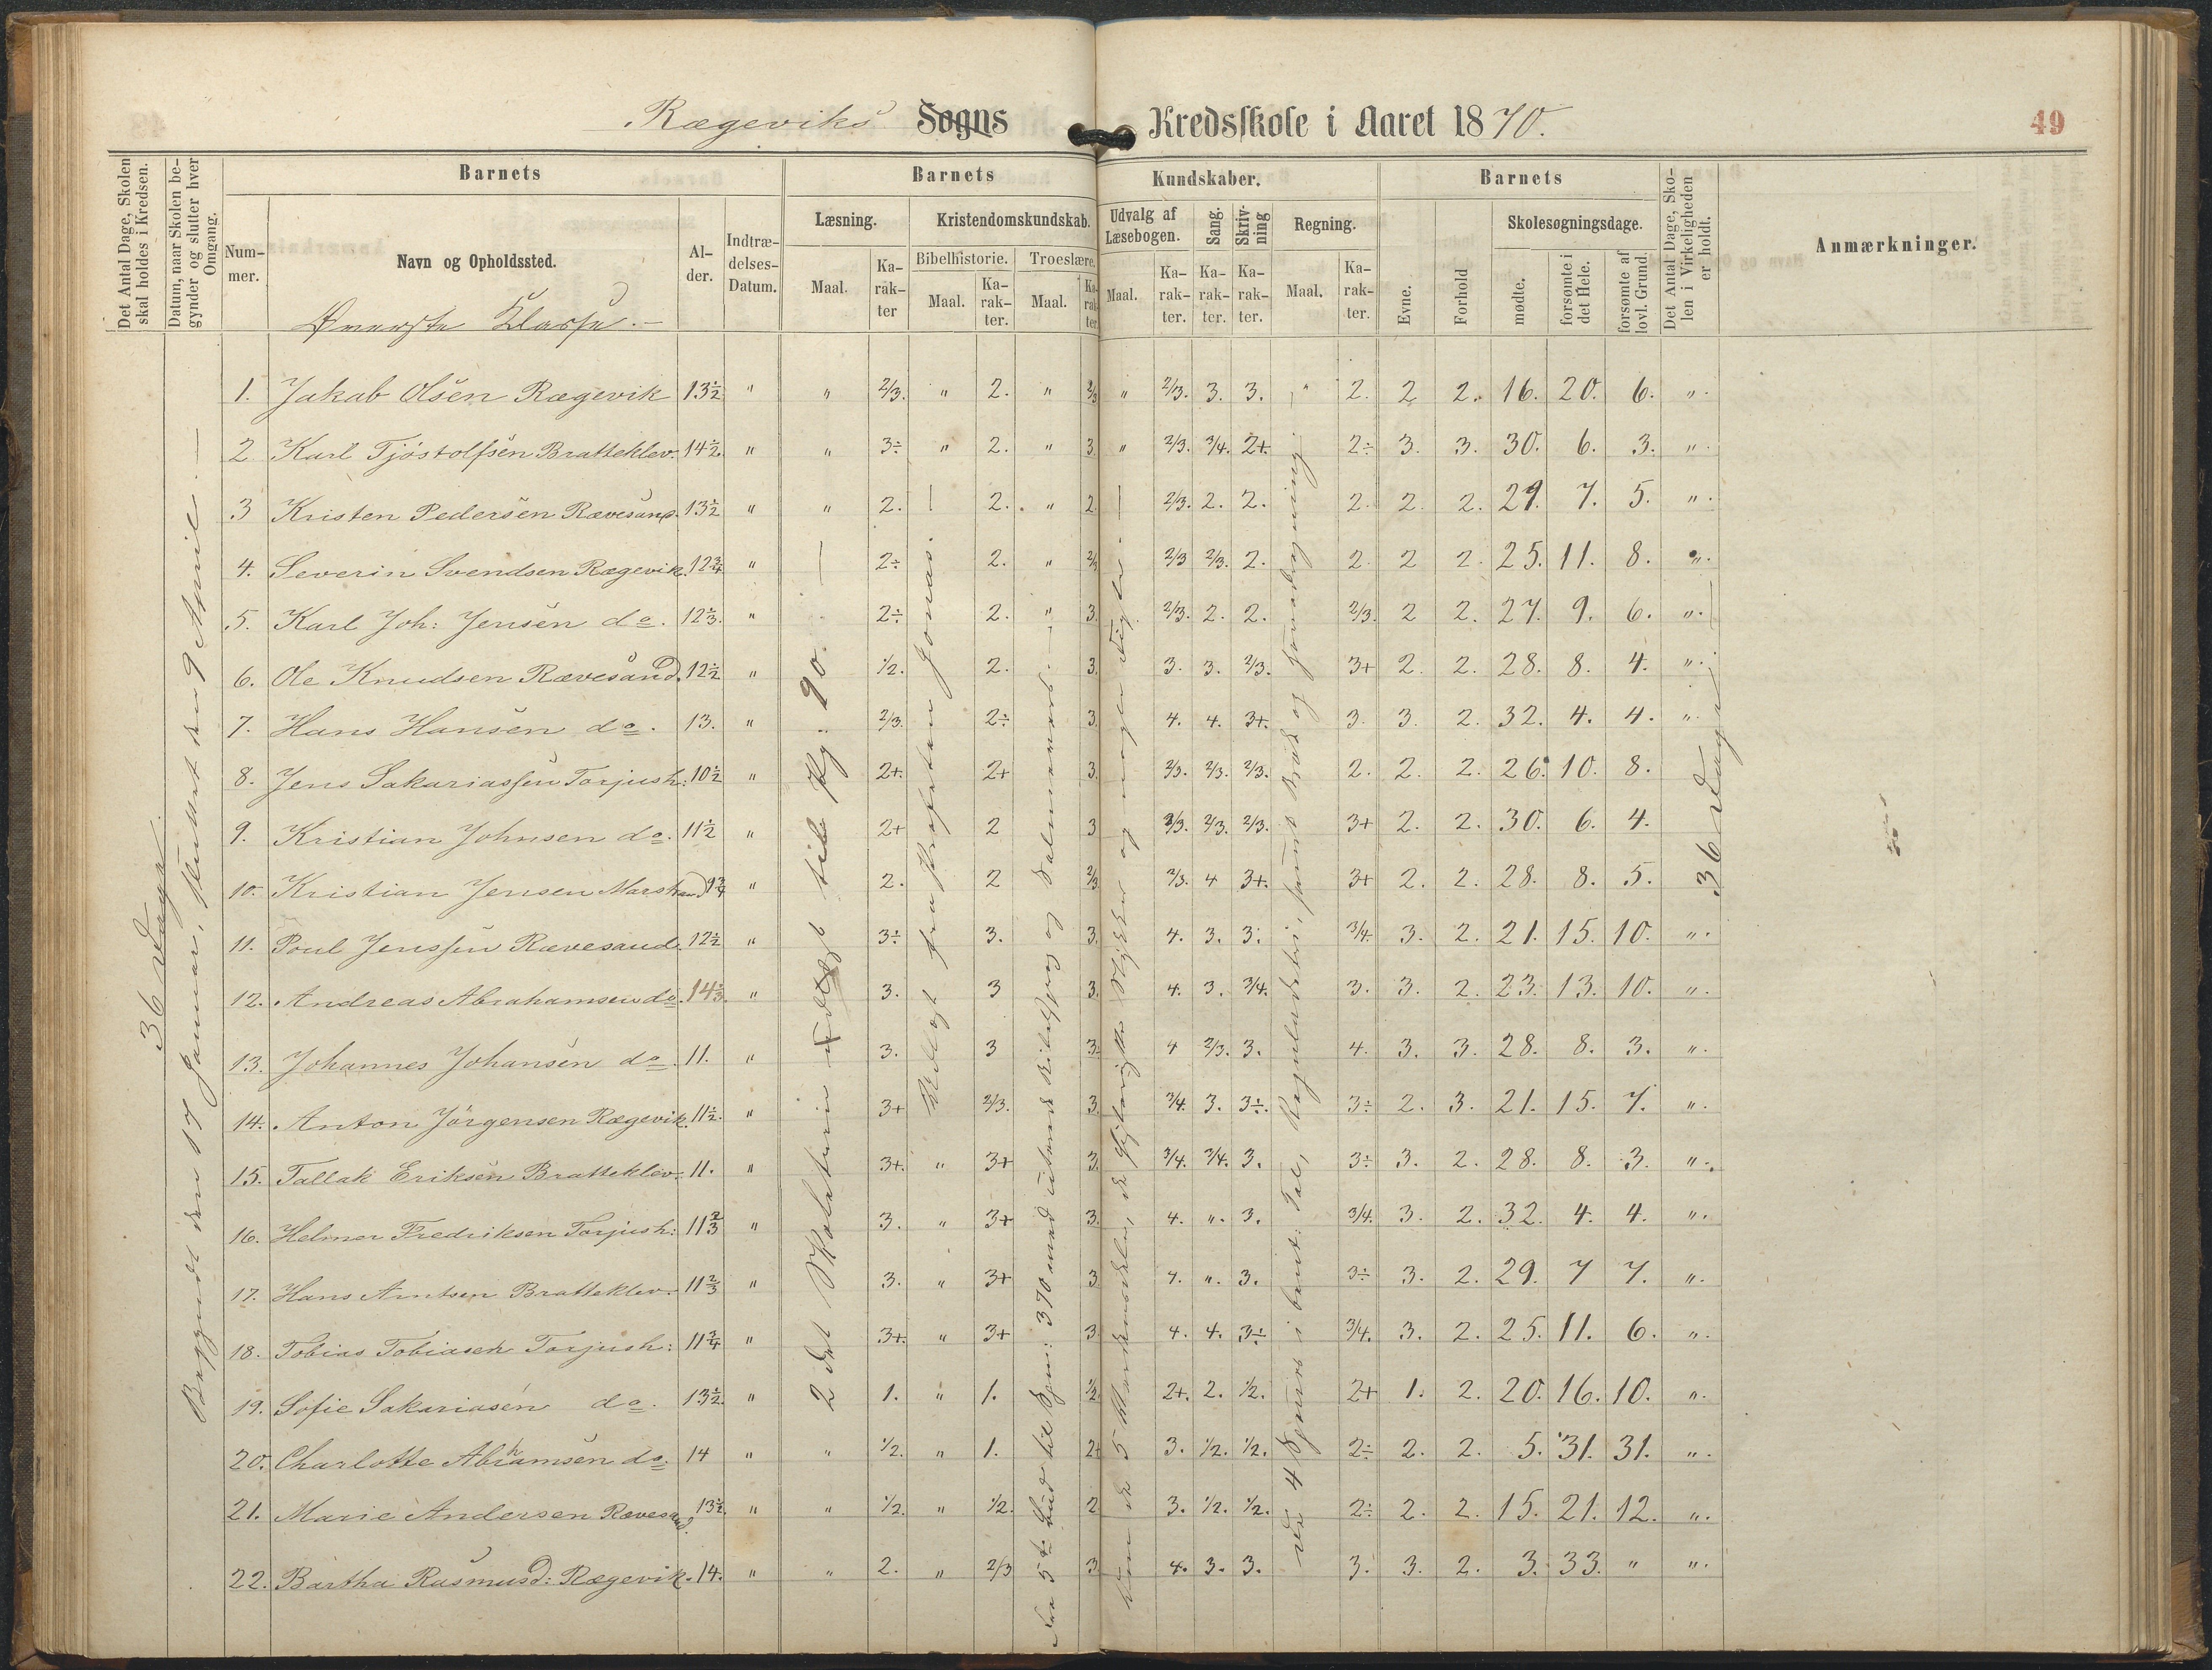 Rægeviks Sogns Kredsskole i Aaret 1870.
49
Det Antal Dage, Skolen skal holdes i Kredsen.
Datum, naar Skolen begynder og slutter hver Omgang.
Barnets
Nummer.
Navn og Opholdssted.
Alder.
Indtrædelses-Datum.
Barnets Kundskaber.
Læsning.
Maal.
Karakter
Kristendomskundskab.
Bibelhistorie.
Maal.
Karakter.
Troeslære.
Maal.
Karakter.
Udvalg af Læsebogen.
Maal.
Karakter.
Sang.
Karakter.
Skrivning
Karakter.
Regning.
Maal.
Karakter.
Barnets
Evne.
Forhold
Skolesøgningsdage.
mødte.
forsømte i det Hele.
forsømte af lovl. Grund.
Det Antal Dage, Skolen i Virkeligheden er holdt.
Anmærkninger.
Øverste Klasse.
36 Dage.
Begyndt den 17 Januar, sluttet den 9 April.
1. Jakab Olsen Rægevik 13½ " " 2/3. " 2. " 2/3 " 2/3. 3. 3. " 2. 2 2. 16. 20. 6. ".
2 Karl Tjöstolfsen Bratteklev. 14½. " " 3÷ " 2. " 3. " 2/3. 3/4. 2+. 2÷ 3. 3. 30. 6. 3. ".
3 Kristen Pedersen Rævesand. 13½ " " 2. 2. " 2. 2/3. 2. 2. 2. 2. 2. 29. 7. 5. ".
4. Severin Svendsen Rægevik. 12¾ " 2÷ 2. " 2/3 2/3 2/3. 2. 2. 2 2. 25. 11. 8. ".
5. Karl Joh: Jensen do. 12⅓. " 2÷ 2. " 3. 2/3. 2. 2. 2/3. 2 2. 27. 9. 6. ".
6. Ole Knudsen Rævesand. 12½ " 1/2. 2. 3. 3. 3. 2/3. 3+ 2. 2. 28. 8. 4. ".
7. Hans Hansen do. 13. " 2/3. 2÷ 3. 4. 4. 3+. 3. 3. 2. 32. 4. 4. ".
8. Jens Sakariassen Torjush: 10½ " 2+. 2+ 3. 2/3. 2/3. 2/3. 2. 2. 2. 26. 10. 8.
9. Kristian Johnsen do. 11½ " 2+ 2 3 2/3. 2/3. 2/3. 3+ 2. 2. 30. 6. 4.
10. Kristian Jensen Marstrand 9¾ " 2. 2 2/3. 2/3. 4 3+. 3+ 2. 2. 28. 8. 5.
11. Poul Jenssen Rævesand. 12½ " 3÷ 3. 3. 4. 3. 3. 3/4. 3. 2. 21. 15. 10. ".
12. Andreas Abrahamsen do. 14⅓. " 3. 3 3. 4. 3. 3/4. 3. 3. 2. 23. 13. 10. ".
13. Johannes Johansen do. 11. " 3. 3 3. 4 2/3. 3. 4. 3. 3. 28. 8. 3. ".
14. Anton Jörgensen Rægevik. 11½. " 3+ 2/3. 3. 3/4. 3. 3÷. 3÷ 2. 3. 21. 15. 7. ".
15. Tallak Eriksen Bratteklev. 11. " 3+. " 3+ 3. 3/4. 3/4. 3. 3÷ 3. 2. 28. 8. 3. ".
16. Helmer Fredriksen Torjush: 11⅔ " 3. " 3+ 3. 4. ". 3. 3/4. 3. 2. 32. 4. 4. ".
17. Hans Arntsen Bratteklev. 11⅔ " 3. " 3+ 3 4. ". 3. 3÷ 3. 2. 29. 7 7. ".
18. Tobias Tobiasen Torjush: 11¾ " 3+. " 3+ 3. 4. 4. 3÷ 3/4. 3. 2. 25. 11. 6. ".
19. Sofie Sakariasen do. 13½. " 1. " 1. 1/2. 2+. 2. 1/2. 2+ 1. 2. 20. 16. 10. ".
20. Charlotte Abrhamsen do. 14 " " 1/2. " 1. 2+ 3. 1/2. 1/2. 2÷ 2. 2. 5. 31. 31. ".
21. Marie Andersen Rævesand. 13½. " " 1/2. " 1/2. 2 3. 1/2. 1/2. 2÷ 2. 2. 15. 21. 12. ".
22. Bartha Rasmusd: Rægevik. 14. " " 2. " 2/3 3. 4. 3. 3. 3. 3. 2. 3. 33. " ".
2det Skoletrin til Pg: 90.
fra Profeten Jonas.
Fra 5te Bud til Spm: 370 med
og Salmevers.
og nogle Digte.
de 4 Spesies i
Tal,
samt Brøk og
36 Dage